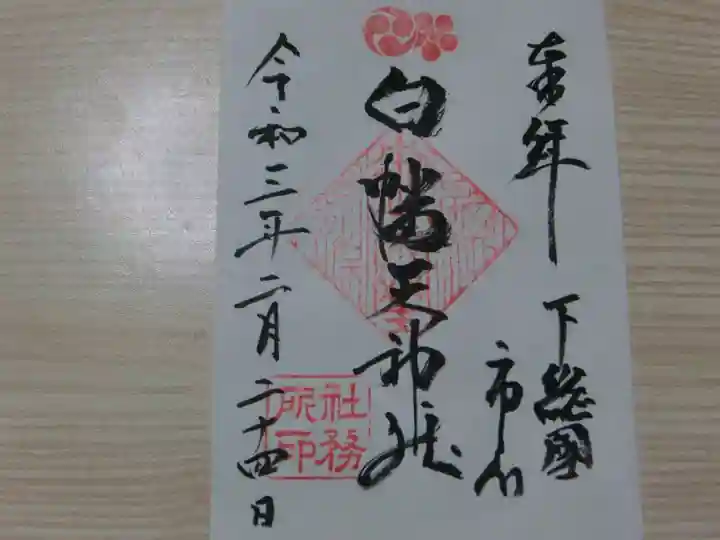 奉拝
下総國
市川
白幡天神社
社務
所印
令和三年二月二十四日